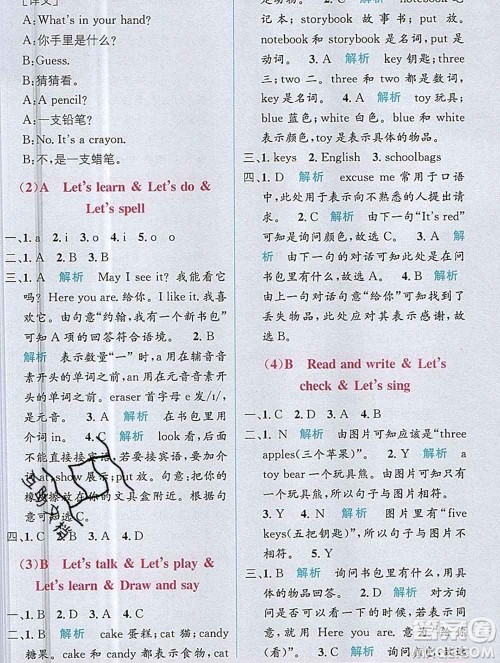 [译文]
A:What's in your hand?
A:你手里是什么?
B:Guess.
B:猜猜看。
A:A pencil?
A:一支铅笔?
B:No. It's a crayon.
B:不,是一支蜡笔。
(2)A Let's learn & Let's do &
Let's spell
一、1. a 2. i 3. o 4. i 5. o o
二、1. A 2. B 3. B
三、1. A 解析 May I see it? 我能看它
吗? Here you are. 给你。I like it. 我喜
欢它。由句意“约翰,我有一个新书包”
可知 A 项的回答符合语境。 2. B
解析 表示数量“一”时,a 用在辅音音
素开头的单词之前,an 用在元音音素
开头的单词之前。eraser 首字母 e 发/ɪ/,
是元音。 3. A 解析 在书包里用
介词 in。 4. A 解析 look 看,后面
不能直接接宾语,若要接宾语,要加介
at,show 展示;put 放。句意:把你的
橡皮擦放在你的文具盒附近。根据句
意可知选 A。
四、1. C 2. A 3. D 4. B
(3)B Let's talk & Let's play &
Let's learn & Draw and say
一、1. B 2. C 3. A
二、1. B 解析 cake 蛋糕;cat 猫;candy
糖果。 2. C 解析
记本;storybook 故事书;put 放。
notebook 和 storybook 是名词,put 是
动词。 3. B 解析 key 钥匙;three
三;two 二。three 和 two 都是数词,
key 是名词。 4. A 解析 toy 玩具;
blue 蓝色;white 白色。blue 和 white
表示颜色,toy 表示具体的物品。
三、1. keys 2. English 3. schoolbags
四、1. D 解析 excuse me 常用于口语
中,此处用来表示向不熟悉的人提出请
求。 2. C 解析 由下一句“It's red”
可知是询问颜色,故选 C。 3. A
解析 由下一句的对话可知此处在问
书包里有什么,故选 A。 4. B 解析
由上一句对话句意“给你”可知找到了
丢失物品,此处应对其表示感谢。故
选 B。
(4)B Read and write & Let's
check & Let's sing
一、1. C 2. D 3. A 4. B
二、1. N 解析 由图片可知应该是“three
apples(三个苹果)”。 2. Y 解析 a
toy bear 一个玩具熊。由图片可知是一
个玩具熊,故句子与图片相符。
3. Y 4. N 解析 由图片可知是“five
keys(五把钥匙)”,故句子与图片不相
符。 5. Y
三、1. B 解析 询问书包里有什么,故